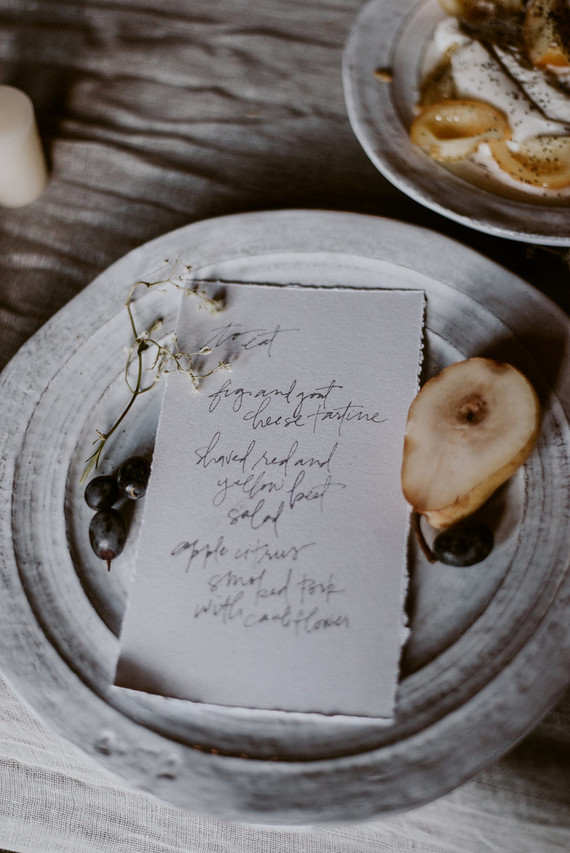 to eat
fig and goat
cheese tartine
shaved red and
yellow beet
salad
apple citrus
smoked pork
with cauliflower